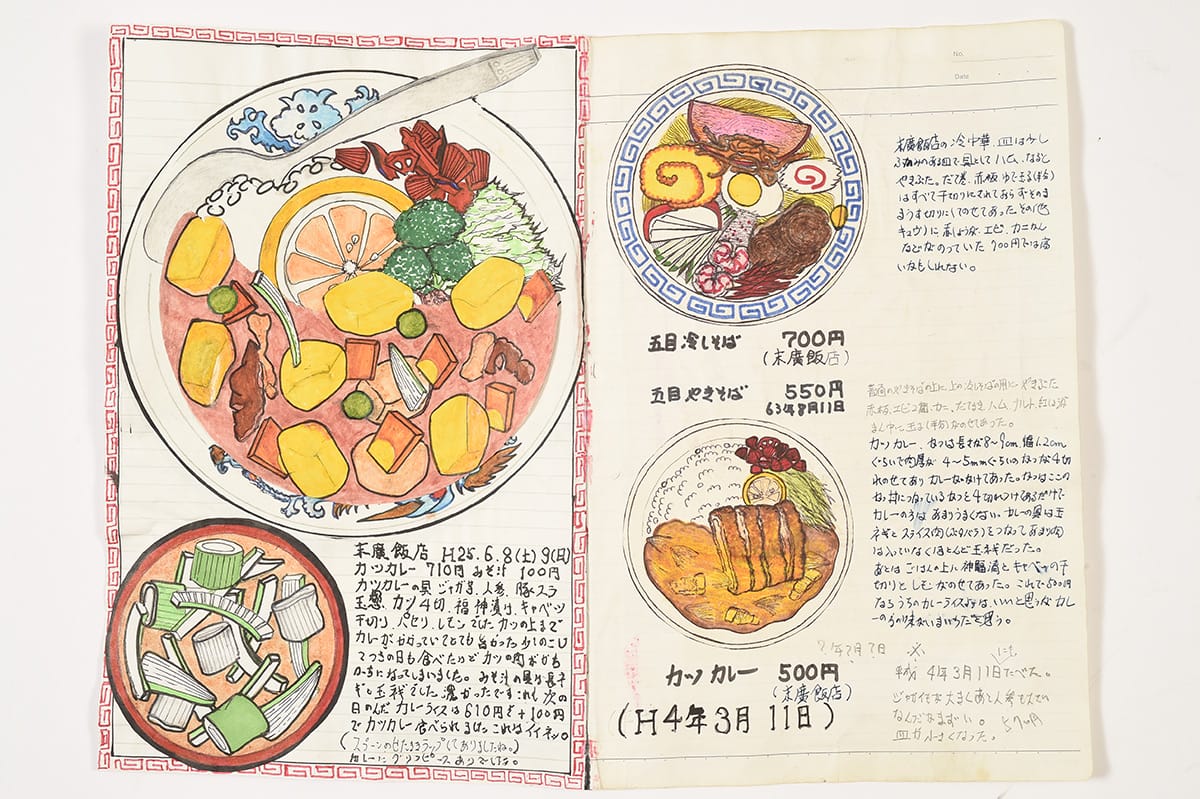 末廣飯店 H25.6.8(土)9(日)
カツカレー 710円 みそ汁 100円
カツカレーの具 ジャガ芋、人参、豚スラ
玉葱、カツ4切、福神漬け、キャベツ
千切り、パセリ、レモンでした カツの上まで
カレーがかかっていてとても旨かった 少しのこし
てつぎの日も食べたけど カツの肉がかち
かちになってしまいました。みそ汁の具は長ネ
ギと玉ネギでした 濃かったです
日のんだ カレーライスは610円 + 100円
でカツカレー食べられました これはイイネッ。
(スプーンのせたままラップしてありましたね。)
カレーに グリンピース ありでした。
No.
Date
末廣飯店の冷中華 皿は少し
深みのある皿で具として ハム、なると
やきぶた。だて巻、赤板 ゆで玉子(半分)
はすべて千切りにされておらずそのま
まうす切りにしてのせてあった その他
キュウリに 紅しょうが、エビ、カニかん
などがのっていた 700円では高
いかもしれない。
五目冷しそば 700円
(末廣飯店)
五目やきそば 550円
63年8月11日
普通のやきそばの上に上の冷しそばの用に やきぶた
赤板、エビ2個、カニ、だてまき、ハム、ナルト、紅しょうが
まん中に玉子(半分)がのせてあった。
カツカレー、カツは長さが8〜9cm 幅1.2cm
ぐらいで肉厚が 4〜5mmぐらいのカツが4切
れのせてあり カレーがかけてあった。
カレーのほうは あまりうまくない。カレーの具は玉
ネギと スライス肉(ぶたバラ)をつかって あまり肉
は入っていなくほとんど玉ネギだった。
あとは ごはんの上に 福神漬と キャベツの千
切りと レモンがのせてあった。これで500円
なら うちのカレーライスよりは、いいと思うが カレ
カツカレー 500円
(末廣飯店)
(H4年3月11日)
平成 4年3月11日にたべた。
皿が小さくなった。
570円